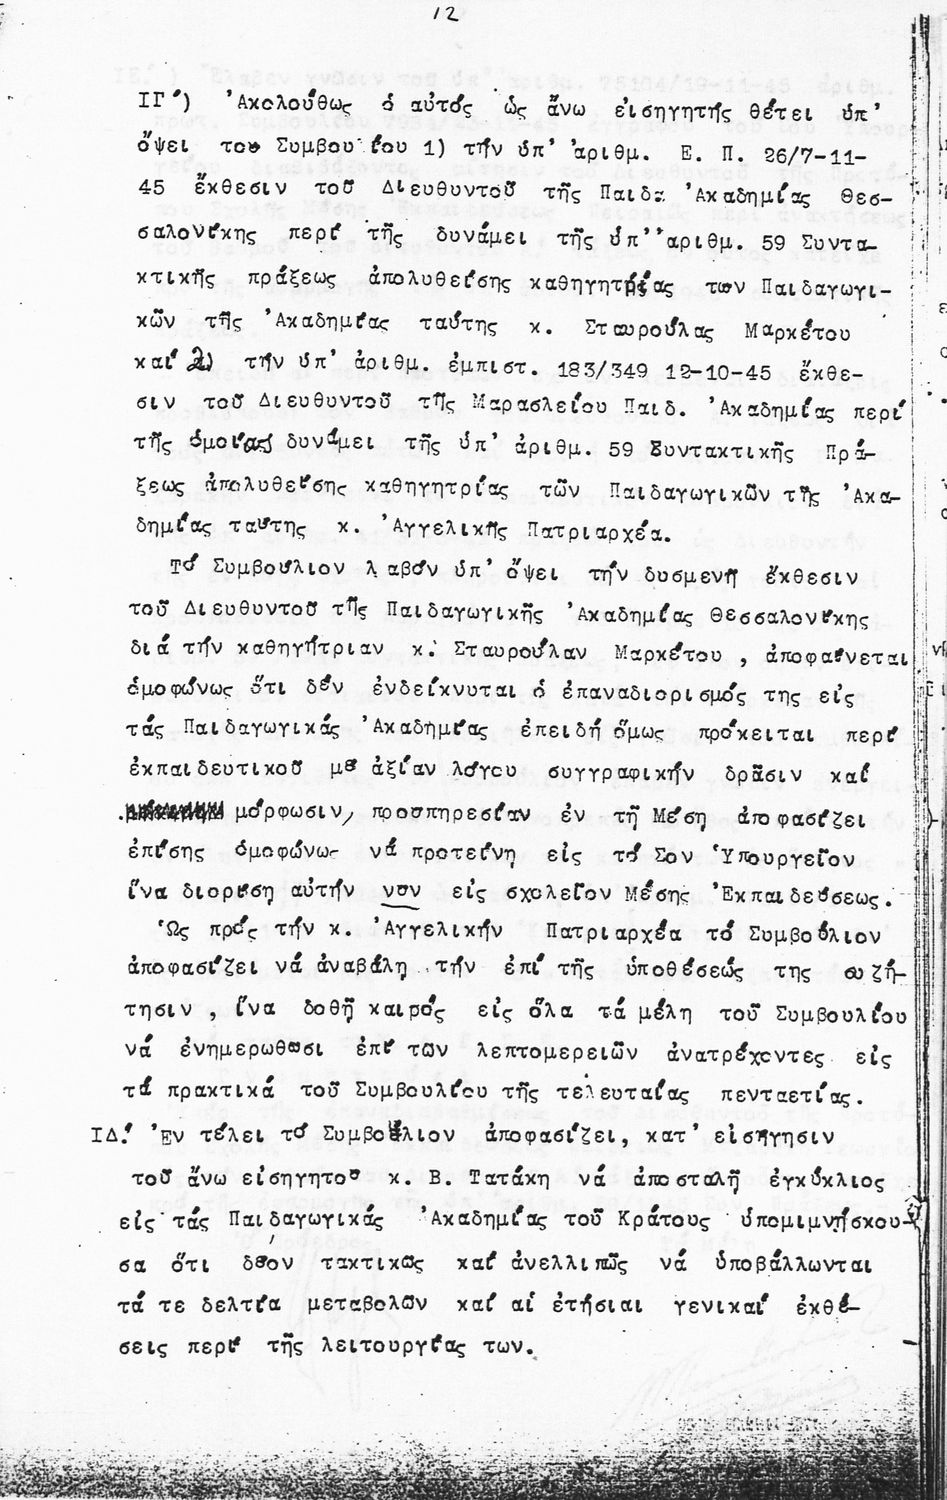 12
ΙΓ΄) Ἀκολούθως ὁ αὐτός ὡς ἄνω εἰσηγητής θέτει ὑπ'
ὄψει του Συμβουλίου 1) τήν ὑπ' ἀριθμ. Ε. Π. 26/7-11-
45 ἔκθεσιν τοῦ Διευθυντοῦ τῆς Παιδ. Ἀκαδημίας Θεσ-
σαλονίκης περί τῆς δυνάμει τῆς ὑπ' ἀριθμ. 59 Συντα-
κτικῆς πράξεως ἀπολυθείσης καθηγητρίας των Παιδαγωγι-
κῶν τῆς Ἀκαδημίας ταύτης κ. Σταυρούλας Μαρκέτου
καί 2) τήν ὑπ' ἀριθμ. ἐμπιστ. 183/349 12-10-45 ἔκθε-
σιν τοῦ Διευθυντοῦ τῆς Μαρασλείου Παιδ. Ἀκαδημίας περί
τῆς ὁμοίας δυνάμει τῆς ὑπ' ἀριθμ. 59 Συντακτικῆς Πρά-
ξεως ἀπολυθείσης καθηγητρίας τῶν Παιδαγωγικῶν τῆς Ἀκα-
δημίας ταύτης κ. Ἀγγελικῆς Πατριαρχέα.
Τό Συμβούλιον λαβόν ὑπ' ὄψει τήν δυσμενῆ ἔκθεσιν
τοῦ Διευθυντοῦ τῆς Παιδαγωγικῆς Ἀκαδημίας Θεσσαλονίκης
διά τήν καθηγήτριαν κ. Σταυρούλαν Μαρκέτου , ἀποφαίνεται
ὁμοφώνως ὅτι δέν ἐνδείκνυται ὁ ἐπαναδιορισμός της εἰς
τάς Παιδαγωγικάς Ἀκαδημίας ἐπειδή ὅμως πρόκειται περί
ἐκπαιδευτικοῦ με ἀξίαν λόγου συγγραφικήν δρᾶσιν καί
μόρφωσιν, προσπηρεσίαν ἐν τῇ Μέση ἀποφασίζει
ἐπίσης ὁμοφώνως νά προτείνη εἰς τό Σον Ὑπουργεῖον
ἵνα διορίση αὐτήν νυν εἰς σχολεῖον Μέσης Ἐκπαιδεύσεως.
Ὡς πρός τήν κ. Ἀγγελικήν Πατριαρχέα τό Συμβούλιον
ἀποφασίζει νά ἀναβάλη τήν ἐπί τῆς ὑποθέσεώς της συζή-
τησιν , ἵνα δοθῇ καιρός εἰς ὅλα τά μέλη τοῦ Συμβουλίου
νά ἐνημερωθοσι ἐπί των λεπτομερειῶν ἀνατρέχοντες εἰς
τά πρακτικά τοῦ Συμβουλίου τῆς τελευταίας πενταετίας.
ΙΔ΄ Ἐν τέλει τό Συμβούλιον ἀποφασίζει, κατ' εἰσήγησιν
τοῦ ἄνω εἰσηγητοῦ κ. Β. Τατάκη νά ἀποσταλῇ ἐγκύκλιος
εἰς τάς Παιδαγωγικάς Ἀκαδημίας τοῦ Κράτους ὑπομιμνήσκου-
σα ὅτι δέον τακτικῶς καί ἀνελλιπῶς νά ὑποβάλλωνται
τά τε δελτία μεταβολῶν καί αἱ ἐτήσιαι γενικαί ἐκθέ-
σεις περί τῆς λειτουργίας των.